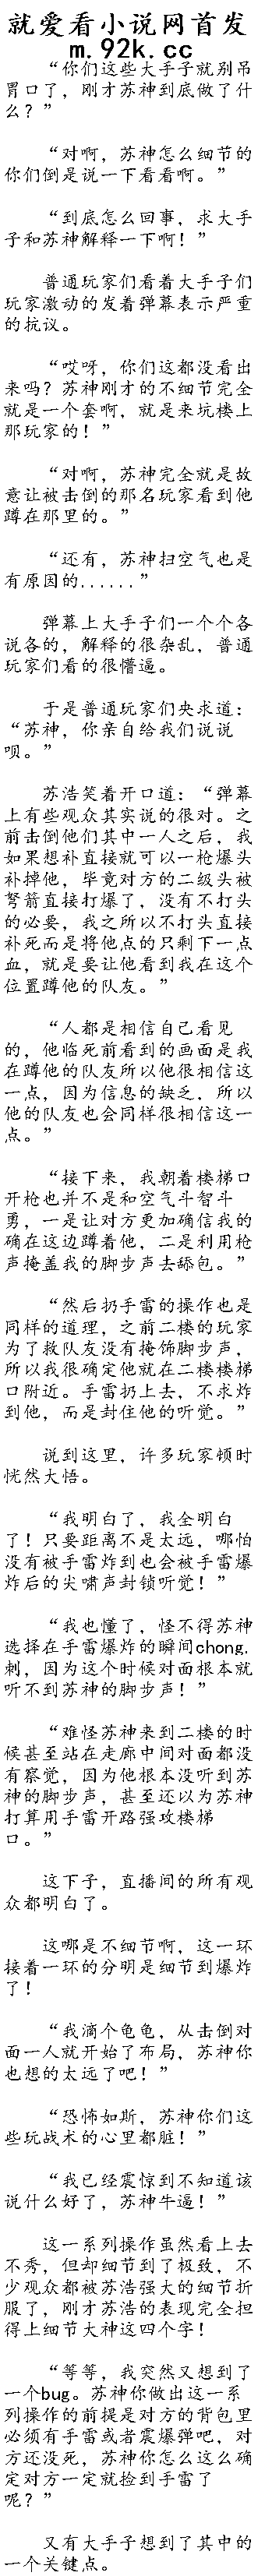 就爱看小说网首发
m.92k.cc
“你们这些大手子就别吊
胃口了，刚才苏神到底做了什
么？”
“对啊，苏神怎么细节的
你们倒是说一下看看啊。”
“到底怎么回事，求大手
子和苏神解释一下啊！”
普通玩家们看着大手子们
玩家激动的发着弹幕表示严重
的抗议。
“哎呀，你们这都没看出
来吗？苏神刚才的不细节完全
就是一个套啊，就是来坑楼上
那玩家的！”
“对啊，苏神完全就是故
意让被击倒的那名玩家看到他
蹲在那里的。”
“还有，苏神扫空气也是
有原因的......”
弹幕上大手子们一个个各
说各的，解释的很杂乱，普通
玩家们看的很懵逼。
于是普通玩家们央求道：
“苏神，你亲自给我们说说
呗。”
苏浩笑着开口道：“弹幕
上有些观众其实说的很对。之
前击倒他们其中一人之后，我
如果想补直接就可以一枪爆头
补掉他，毕竟对方的二级头被
弩箭直接打爆了，没有不打头
的必要，我之所以不打头直接
补死而是将他点的只剩下一点
血，就是要让他看到我在这个
位置蹲他的队友。”
“人都是相信自己看见
的，他临死前看到的画面是我
在蹲他的队友所以他很相信这
一点，因为信息的缺乏，所以
他的队友也会同样很相信这一
点。”
“接下来，我朝着楼梯口
开枪也并不是和空气斗智斗
勇，一是让对方更加确信我的
确在这边蹲着他，二是利用枪
声掩盖我的脚步声去舔包。”
“然后扔手雷的操作也是
同样的道理，之前二楼的玩家
为了救队友没有掩饰脚步声，
所以我很确定他就在二楼楼梯
口附近。手雷扔上去，不求炸
到他，而是封住他的听觉。”
说到这里，许多玩家顿时
恍然大悟。
“我明白了，我全明白
了！只要距离不是太远，哪怕
没有被手雷炸到也会被手雷爆
炸后的尖啸声封锁听觉！”
“我也懂了，怪不得苏神
选择在手雷爆炸的瞬间chong.
刺，因为这个时候对面根本就
听不到苏神的脚步声！”
“难怪苏神来到二楼的时
候甚至站在走廊中间对面都没
有察觉，因为他根本没听到苏
神的脚步声，甚至还以为苏神
打算用手雷开路强攻楼梯
口。”
这下子，直播间的所有观
众都明白了。
这哪是不细节啊，这一环
接着一环的分明是细节到爆炸
了！
“我滴个龟龟，从击倒对
面一人就开始了布局，苏神你
也想的太远了吧！”
“恐怖如斯，苏神你们这
些玩战术的心里都脏！”
“我已经震惊到不知道该
说什么好了，苏神牛逼！”
这一系列操作虽然看上去
不秀，但却细节到了极致，不
少观众都被苏浩强大的细节折
服了，刚才苏浩的表现完全担
得上细节大神这四个字！
“等等，我突然又想到了
一个bug。苏神你做出这一系
列操作的前提是对方的背包里
必须有手雷或者震爆弹吧，对
方还没死，苏神你怎么这么确
定对方一定就捡到手雷了
呢？”
又有大手子想到了其中的
一个关键点。